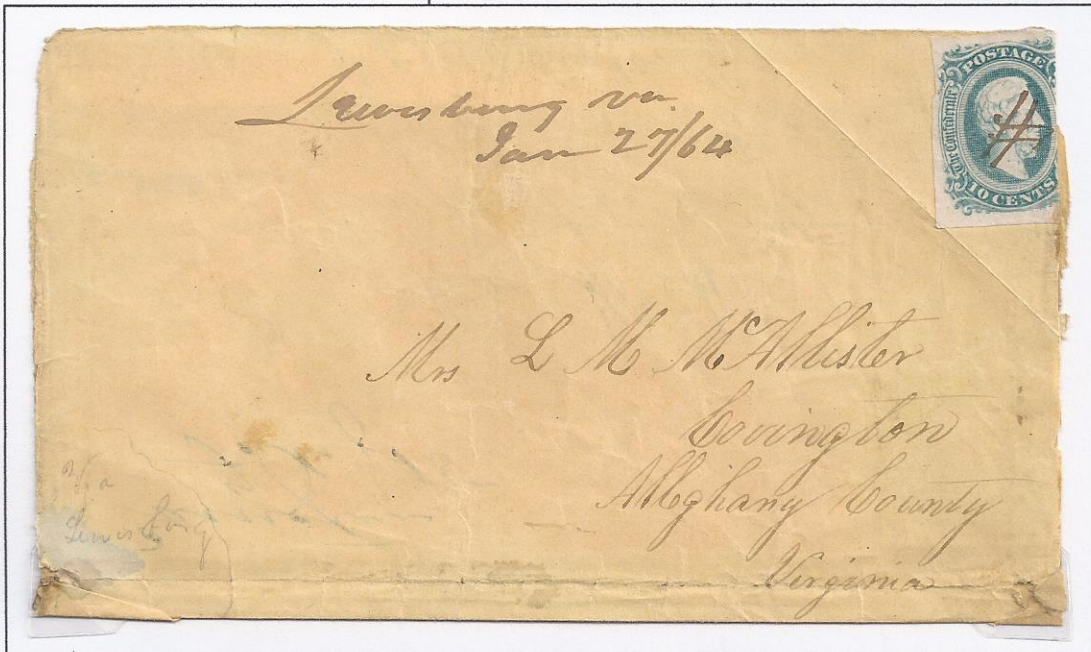 Lewisburg va.
Jan 27/64
POSTAGE
The Confederate
10 CENTS
Mrs L M McAllister
Covington
Alleghany County
Virginia
Via
Lewisburg